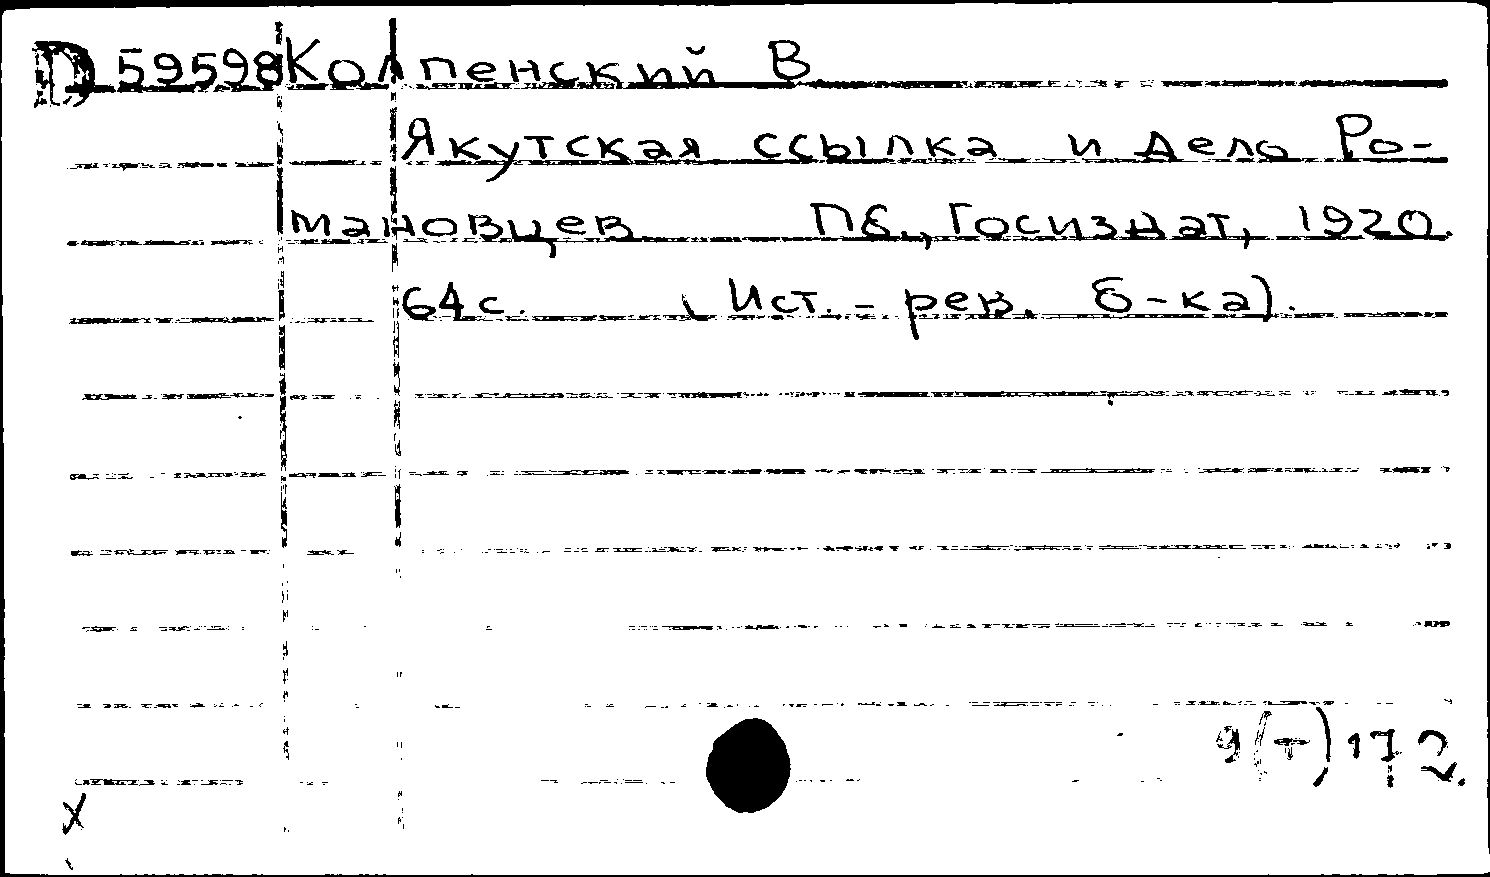 D 59598 Колпенский В
Якутская ссылка и дело Ро-
мановцев Пб., Госиздат, 1920.
64 с. (Ист.-рев. б-ка).
9(Т)172.
x